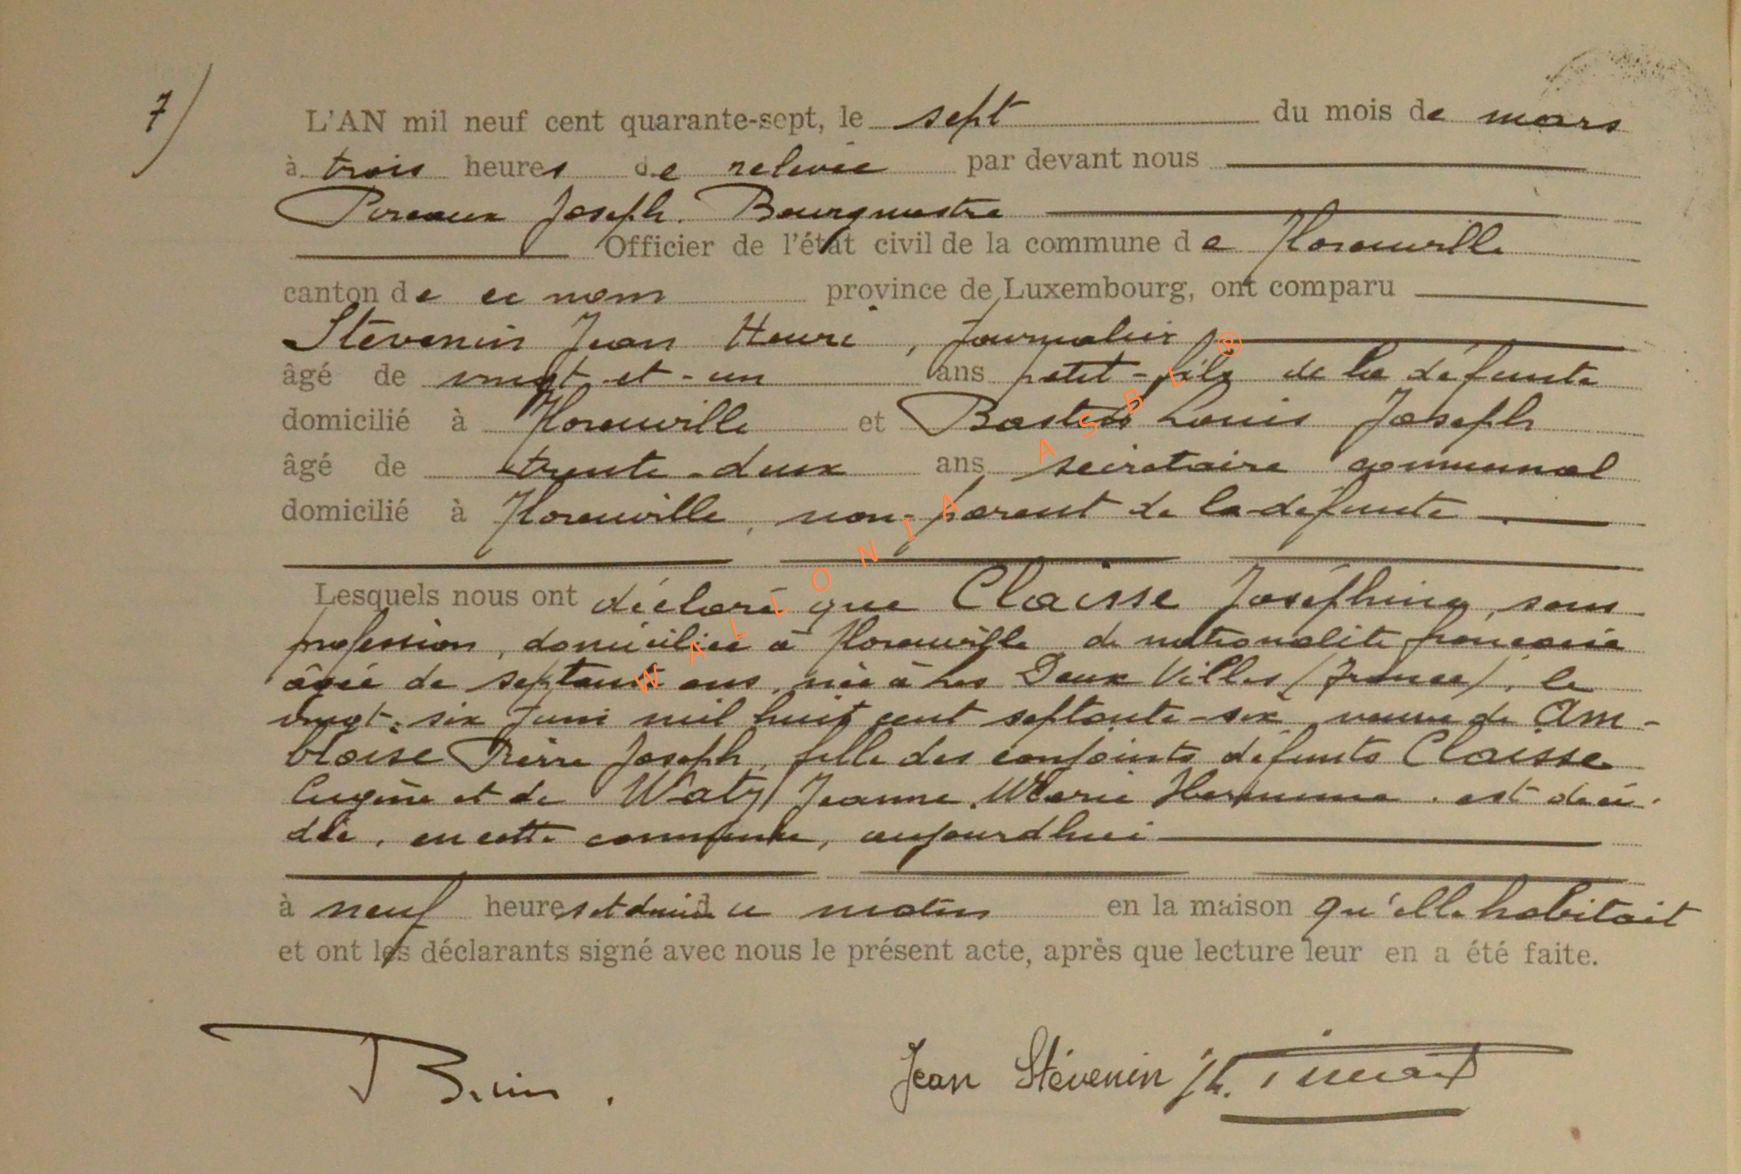 7)
L'AN mil neuf cent quarante-sept, le sept du mois de mars
à trois heures de relevée par devant nous
Joseph. Bourgmestre
Officier de l'état civil de la commune de Florenville
canton de ce nom province de Luxembourg, ont comparu
Stévenin Jean Henri, journalier
âgé de vingt-et-un ans petit-fils de la défunte
domicilié à Florenville et Bastin Louis Joseph
âgé de trente-deux ans secrétaire communal
domicilié à Florenville, non-parent de la défunte
Lesquels nous ont déclaré que Claisse Joséphine, sans
profession, domiciliée à Florenville de nationalité française
âgée de septante ans, née à Les Deux Villes (France), le
vingt-six juin mil huit cent septante-six, veuve de Am-
bloise Pierre Joseph, fille des conjoints défunts Claisse
Eugène et de Waty Jeanne Marie Hermine. est décé-
dée, en cette commune, aujourd'hui
à neuf heures et demie du matin en la maison qu'elle habitait
et ont les déclarants signé avec nous le présent acte, après que lecture leur en a été faite.
Jean Stévenin
WALLONIA ASBL ®